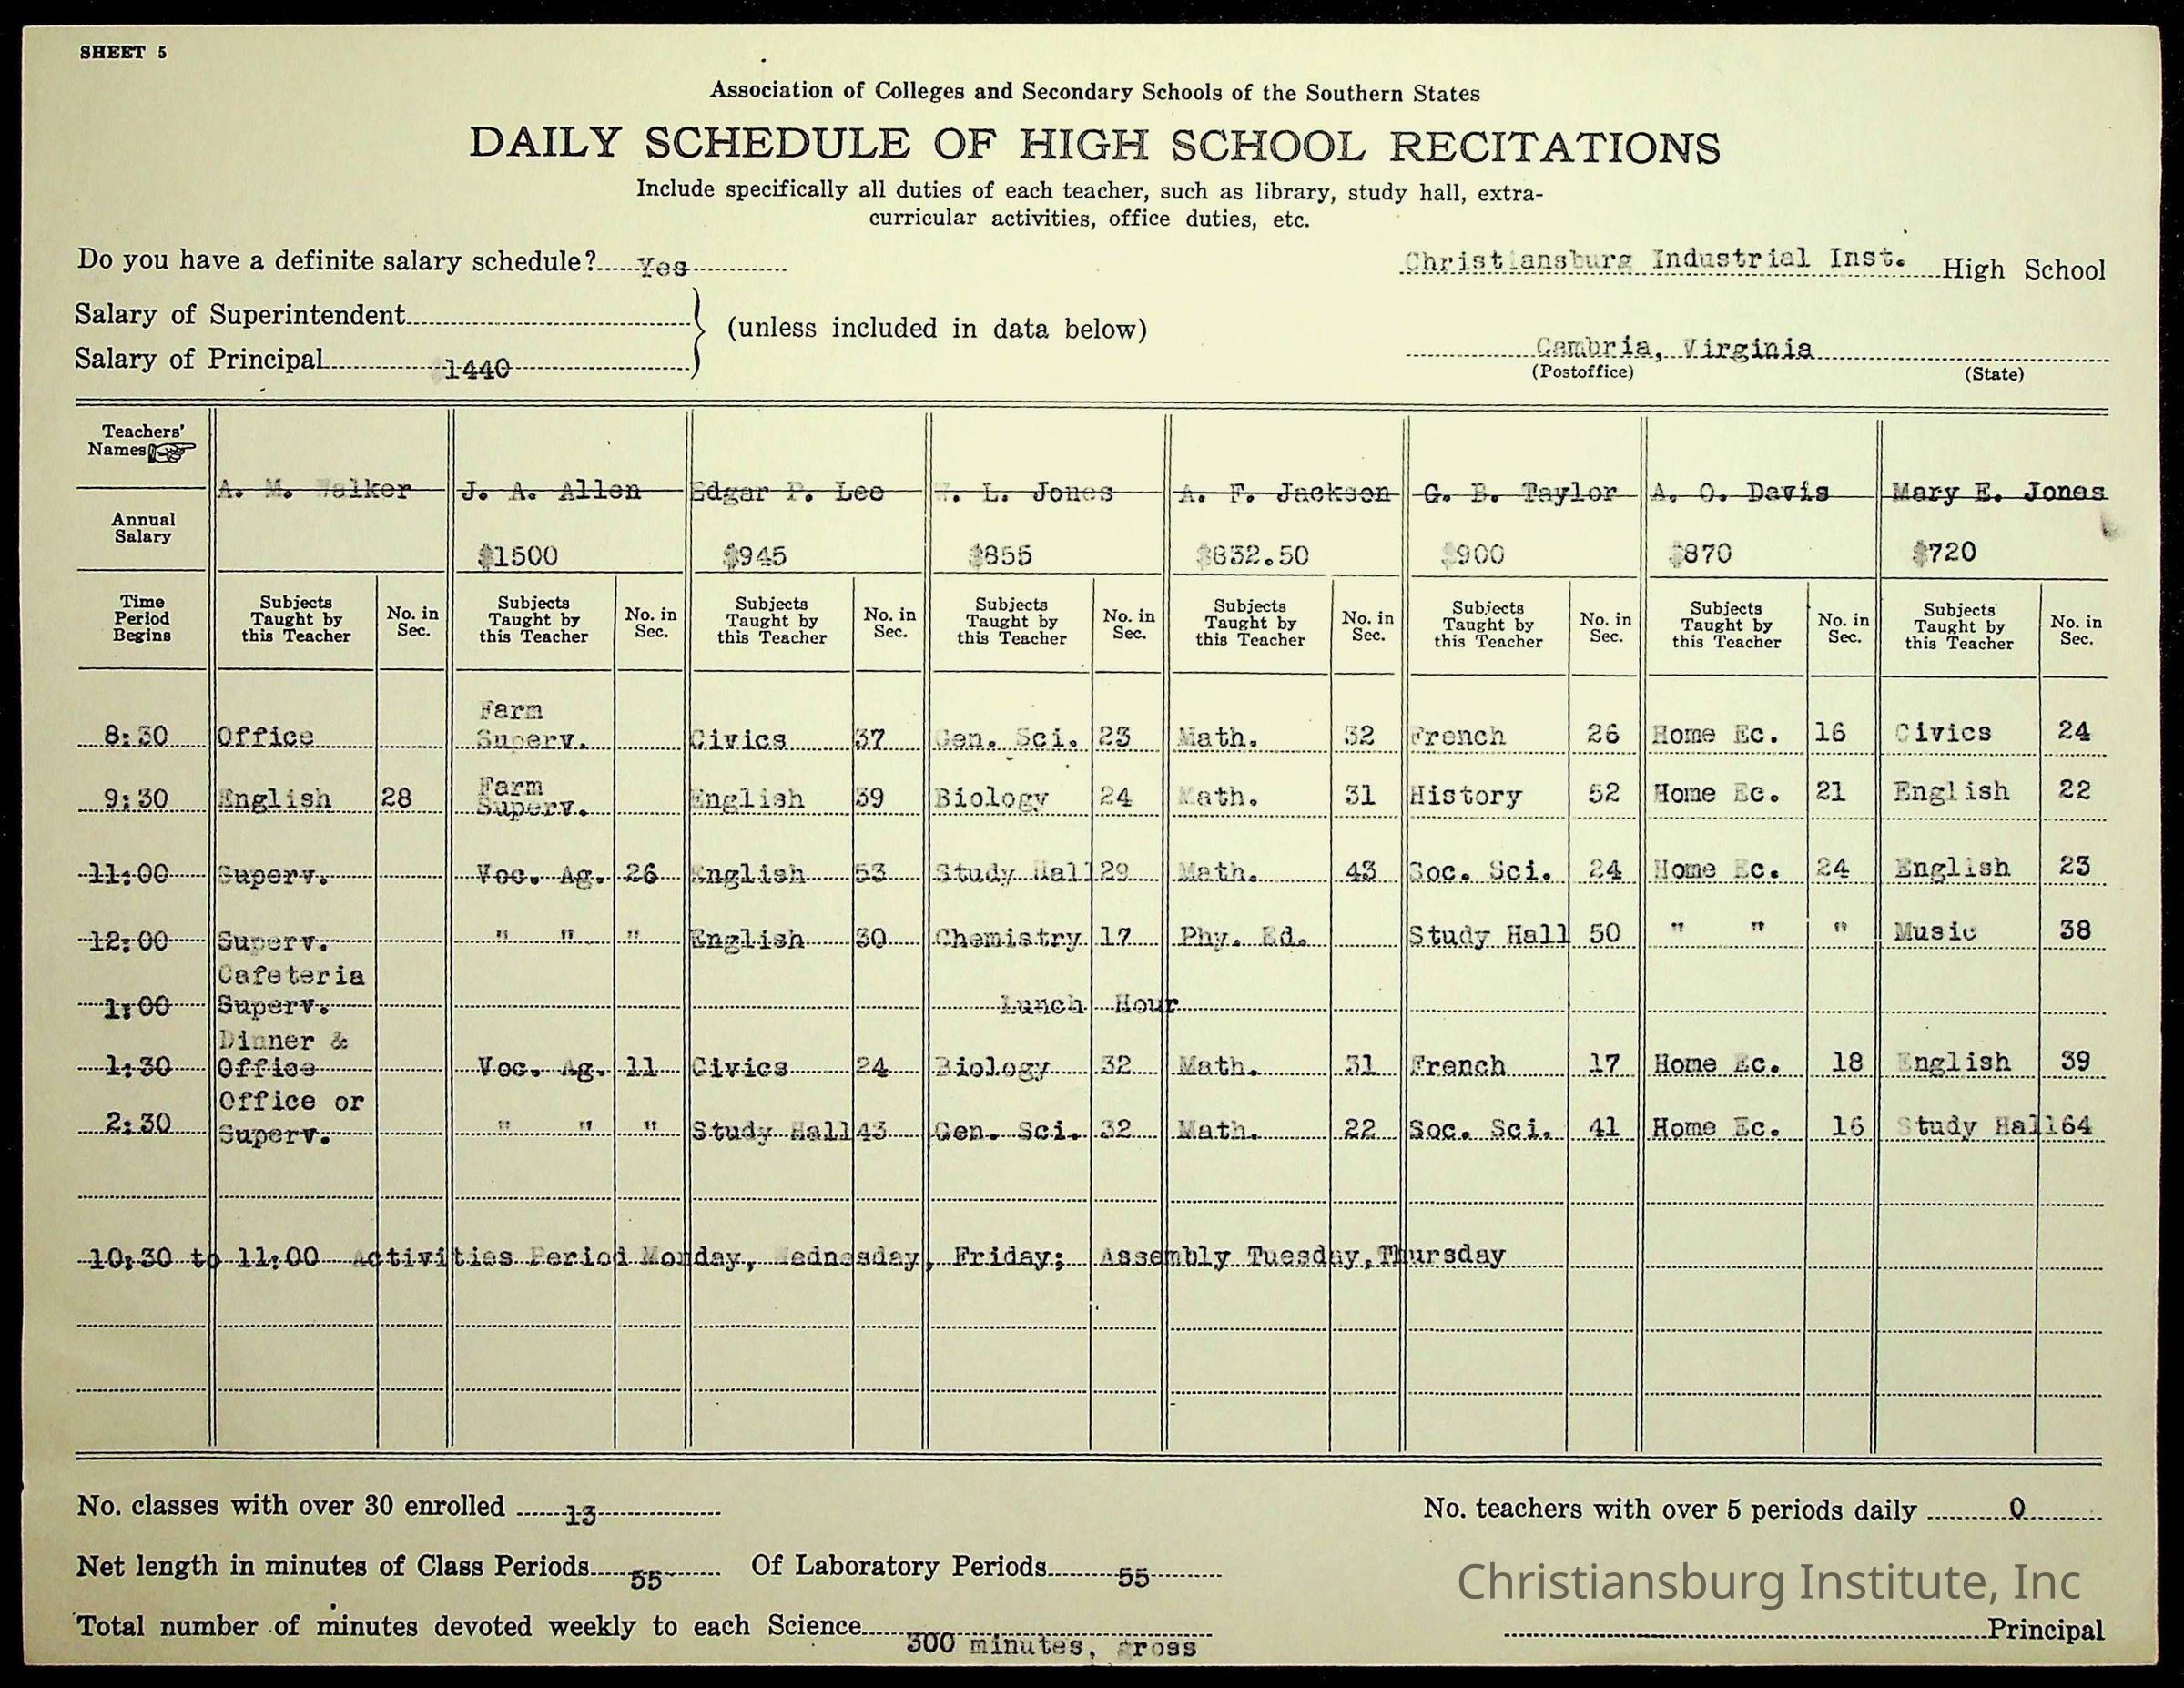 SHEET 5
Association of Colleges and Secondary Schools of the Southern States
DAILY SCHEDULE OF HIGH SCHOOL RECITATIONS
Include specifically all duties of each teacher, such as library, study hall, extra-
curricular activities, office duties, etc.
Do you have a definite salary schedule? Yes
Christiansburg Industrial Inst. High School
Salary of Superintendent
(unless included in data below)
Salary of Principal 1440
Cambria, Virginia
(Postoffice) (State)
Teachers' Names A. M. Walker J. A. Allen Edgar P. Lee W. L. Jones A. F. Jackson G. B. Taylor A. O. Davis Mary E. Jones
Annual Salary $1500 $945 $855 $832.50 $900 $870 $720
Time Period Begins Subjects Taught by this Teacher No. in Sec. Subjects Taught by this Teacher No. in Sec. Subjects Taught by this Teacher No. in Sec. Subjects Taught by this Teacher No. in Sec. Subjects Taught by this Teacher No. in Sec. Subjects Taught by this Teacher No. in Sec. Subjects Taught by this Teacher No. in Sec. Subjects Taught by this Teacher No. in Sec.
8:30 Office Farm Superv. Civics 37 Gen. Sci. 23 Math. 32 French 26 Home Ec. 16 Civics 24
9:30 English 28 Farm Superv. English 39 Biology 24 Math. 31 History 52 Home Ec. 21 English 22
11:00 Superv. Voc. Ag. 26 English 53 Study Hall 29 Math. 43 Soc. Sci. 24 Home Ec. 24 English 23
12:00 Superv. " " " English 30 Chemistry 17 Phy. Ed. Study Hall 50 " " " Music 38
1:00 Cafeteria Superv. Lunch Hour
1:30 Dinner & Office Voc. Ag. 11 Civics 24 Biology 32 Math. 31 French 17 Home Ec. 18 English 39
2:30 Office or Superv. " " " Study Hall 43 Gen. Sci. 32 Math. 22 Soc. Sci. 41 Home Ec. 16 Study Hall 64
10:30 to 11:00 Activities Period Monday, Wednesday, Friday; Assembly Tuesday, Thursday
No. classes with over 30 enrolled 13
No. teachers with over 5 periods daily 0
Net length in minutes of Class Periods 55 Of Laboratory Periods 55
Christiansburg Institute, Inc
Total number of minutes devoted weekly to each Science 300 minutes, gross
Principal